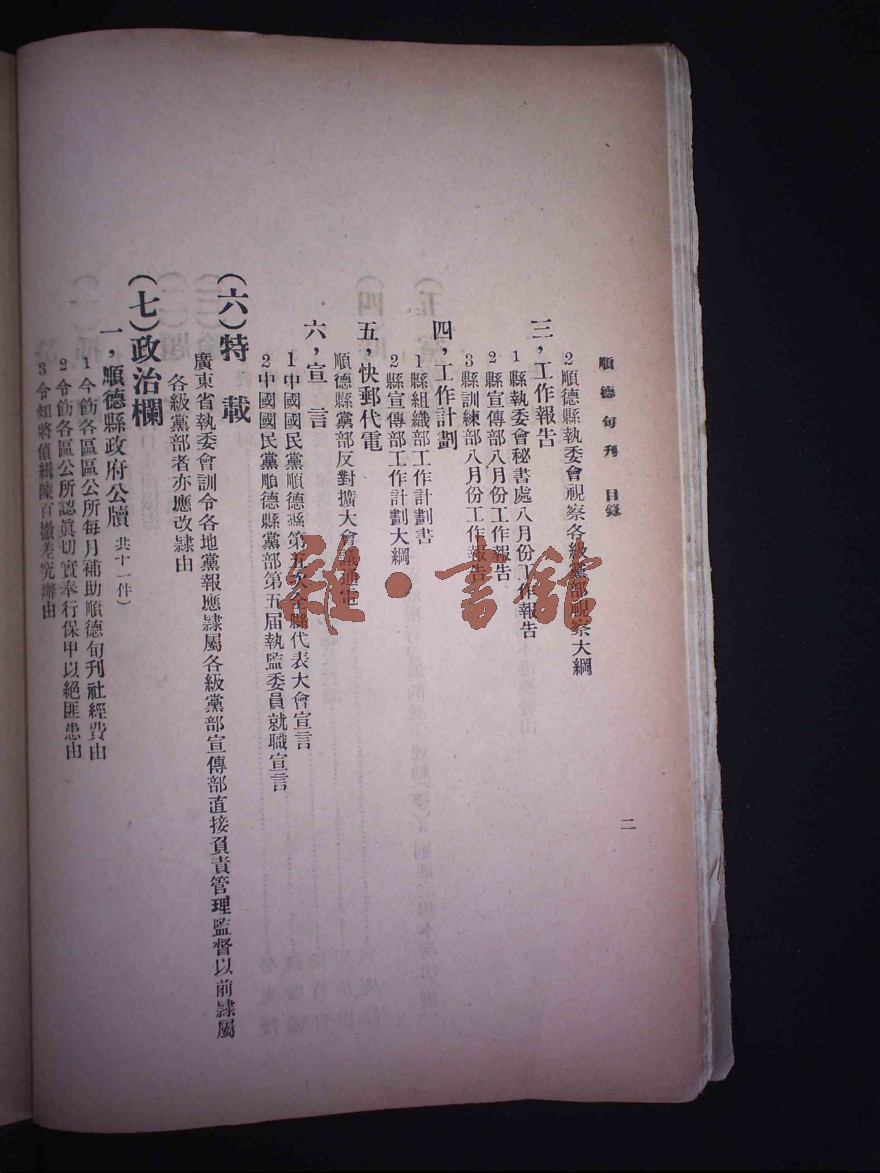 順德旬刊 目錄
二
2順德縣執委會視察各級黨部視察大綱
三，工作報告
1縣執委會秘書處八月份工作報告
2縣宣傳部八月份工作報告
3縣訓練部八月份工作報告
四，工作計劃
1縣組織部工作計劃書
2縣宣傳部工作計劃大綱
五，快郵代電
順德縣黨部反對擴大會議通電
六，宣言
1中國國民黨順德縣第五次全縣代表大會宣言
2中國國民黨順德縣黨部第五届執監委員就職宣言
（六）特載
廣東省執委會訓令各地黨報應隸屬各級黨部宣傳部直接負責管理監督以前隸屬
各級黨部者亦應改隸由
（七）政治欄
一，順德縣政府公牘 共十一件）
1令飭各區區公所每月補助順德旬刊社經費由
2令飭各區公所認眞切實奉行保甲以絕匪患由
3令知將偵緝陳百撤差究辦由
雜·書館